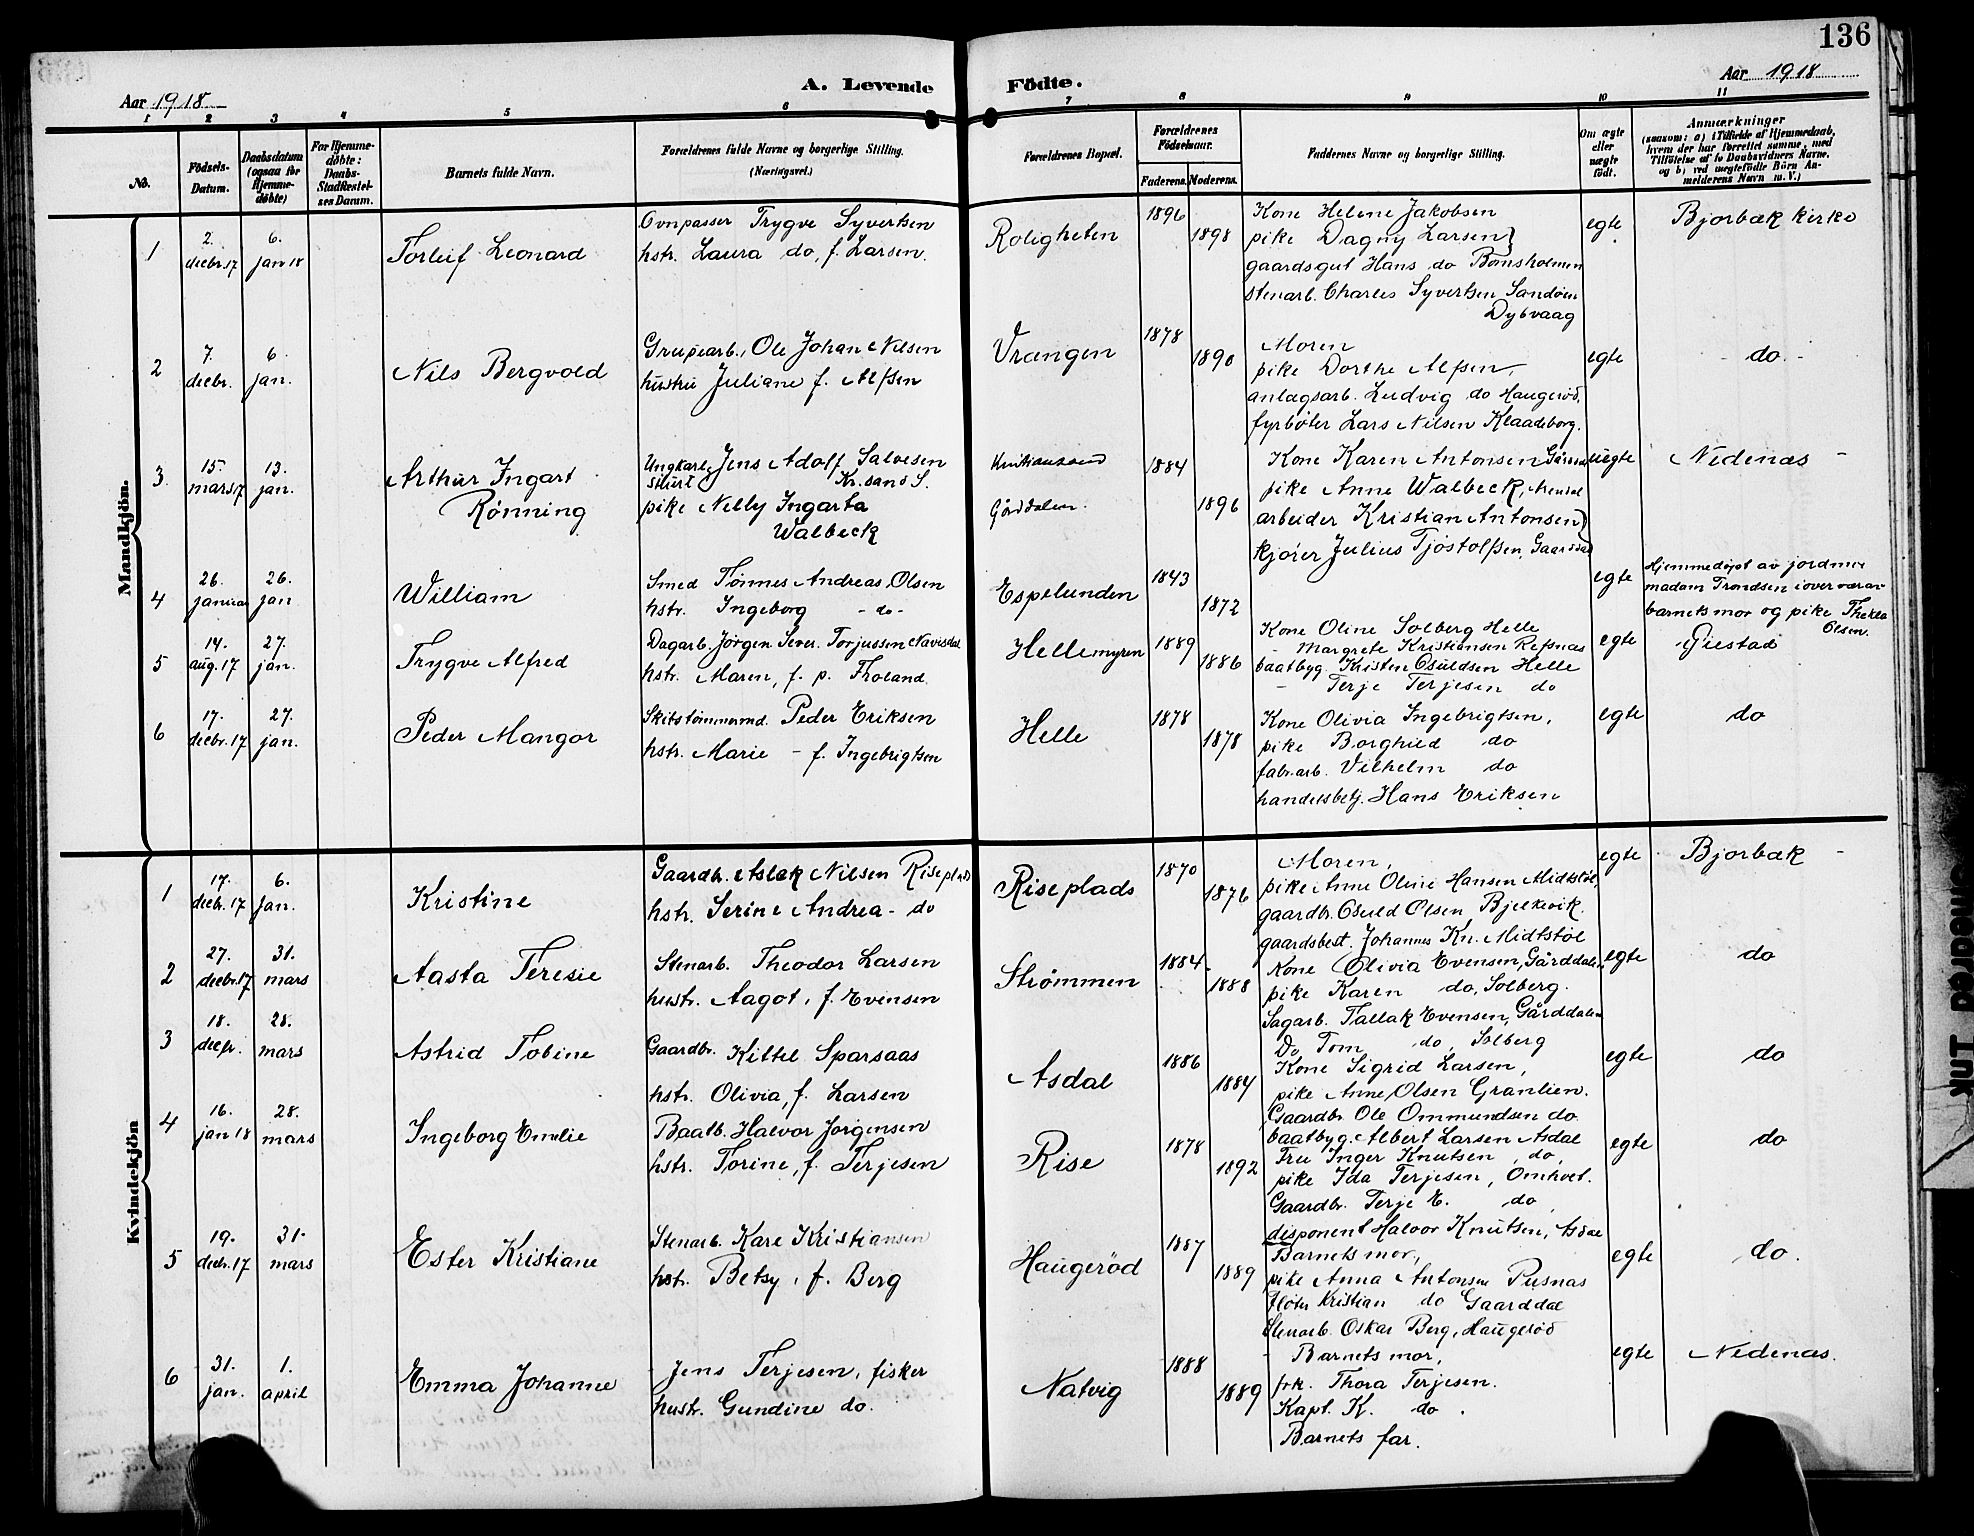 136
Aar 1918
A. Levende Födte.
Aar 1918
1 2 3 4 5 6 7 8 9 10 11
No.
Födsels-Datum.
Daabsdatum (ogsaa for Hjemme-døbte)
For Hjemme-døbte: Daabs-Stadfæstel-ses Datum.
Barnets fulde Navn.
Forældrenes fulde Navne og borgerlige Stilling.
(Næringsvei.)
Forældrenes Bopæl.
Forældrenes Födselsaar.
Faderens. Moderens.
Faddernes Navne og borgerlige Stilling.
Om ægte eller uægte født.
Anmærkninger
(saasom: a) i Tilfælde af Hjemmedaab,
hvem der har forrettet samme, med
Tilföielse af to Daabsvidners Navne,
og b) ved uægtefödte Börn An-
melderens Navn m. V.)
Mandkjön.
1
2. decbr. 17
6. jan 18
Torleif Leonard
Ovnpasser Trygve Syvertsen
hstr. Laura do, f. Larsen.
Roligheten
1896
1898
Kone Helene Jakobsen
pike Dagny Larsen
gaardsgut Hans do Bomsholmen
stenarb. Charles Syvertsen Sandøen
Dybvaag
egte
Bjorbæk kirke
2
7. decbr.
6. jan.
Nils Bergvold
Grupearb. Ole Johan Nilsen
hustru Juliane f. Alfsen
Vrangen
1878
1890
Moren
pike Dorthe Alfsen,
anlagsarb. Ludvig do Haugerød,
fyrbøter Lars Nilsen Klaadeborg.
egte
- do. -
3
15. mars 17
13. jan.
Arthur Ingart
Rønning
Ungkarl Jens Adolf Salvesen
Kr.sand S.
pike Nelly Ingarta
Walbeck
Kristianssand
Gårddalen.
1884
1896
Kone Karen Antonsen
pike Anne Walbeck, Arendal
arbeider Kristian Antonsen
kjører Julius Tjøstolfsen, Gaarddal
uegte
Nedenæs
4
26. januar
26. jan
William
Smed Tønnes Andreas Olsen
hstr. Ingeborg - do -
Espelunden
1843
1872
egte
Hjemmedøpt av jordmor
madam Trondsen i overvær av
barnets mor og pike Thekla
Olsen.
5
14. aug. 17
27. jan.
Trygve Alfred
Dagarb. Jørgen Sever. Torjussen Navisdal
hstr. Maren, f. p. Tholand
Hellemyren
1889
1886
Kone Oline Solberg Helle
- Margrete Kristiansen Refsnæs
baatbyg. Kristen Osuldsen Helle
- Terje Terjesen do
egte
Giestad
6
17. decbr. 17
27. jan.
Peder Mangor
Skibstømmermd. Peder Eriksen
hstr. Marie - f. Ingebrigtsen
Helle
1878
1878
Kone Olivia Ingebrigtsen,
pike Borghild do
fabr.arb. Vilhelm do
handelsbetj. Hans Eriksen
egte
do
Kvindekjön
1
17. decbr. 17
6. jan.
Kristine
Gaardbr. Aslak Nilsen Riseplads
hstr. Serine Andrea - do
Riseplads
1870
1876
Moren,
pike Anne Oline Hansen Midtstøl,
gaardbr. Osuld Olsen Bjelkevik.
gaardsbest. Johannes Kn. Midtstøl
egte
Bjorbæk -
2
27. decbr. 17
31. mars
Aasta Teresie
Stenarb. Theodor Larsen
hustr. Aagot, f. Evensen
Strømmen
1884.
1888
Kone Olivia Evensen, Gårddalen
pike Karen do, Solberg.
Sagarb. Tallak Evensen, Gårddalen
Do Tom do, Solberg
egte
do
3
18. decbr.
28. mars
Astrid Tobine
Gaardbr. Kittel Sparsaas
hstr. Olivia, f. Larsen
Asdal
1886
1884
Kone Sigrid Larsen,
pike Anne Olsen Granlien.
Gaardbr. Ole Ommundsen do.
baatbyg. Albert Larsen Asdal
egte
do
4
16. jan 18
28. mars
Ingeborg Emelie
Baatb. Halvor Jørgensen
hstr. Torine, f. Terjesen
Rise
1878
1892
Fru Inger Knutsen, do,
pike Ida Terjesen, Omholt.
Gaardbr. Terje E. do
disponent Halvor Knutsen, Asdal
egte
do
5
19. decbr. 17
31. mars
Ester Kristiane
Stenarb. Kare Kristiansen
hstr. Betsy, f. Berg
Haugerød
1887
1889
Barnets mor,
pike Anna Antonsen Pusnæs
fløter Kristian do Gaarddal
Stenarb. Oskar Berg, Haugerød
egte
do.
6
31. jan.
1. april
Emma Johanne
Jens Terjesen, fisker
hustr. Gundine do.
Natvig
1888
1889
- Barnets mor,
frk. Thora Terjesen.
Kapt. K. do.
Barnets far.
egte
Nedenæs.